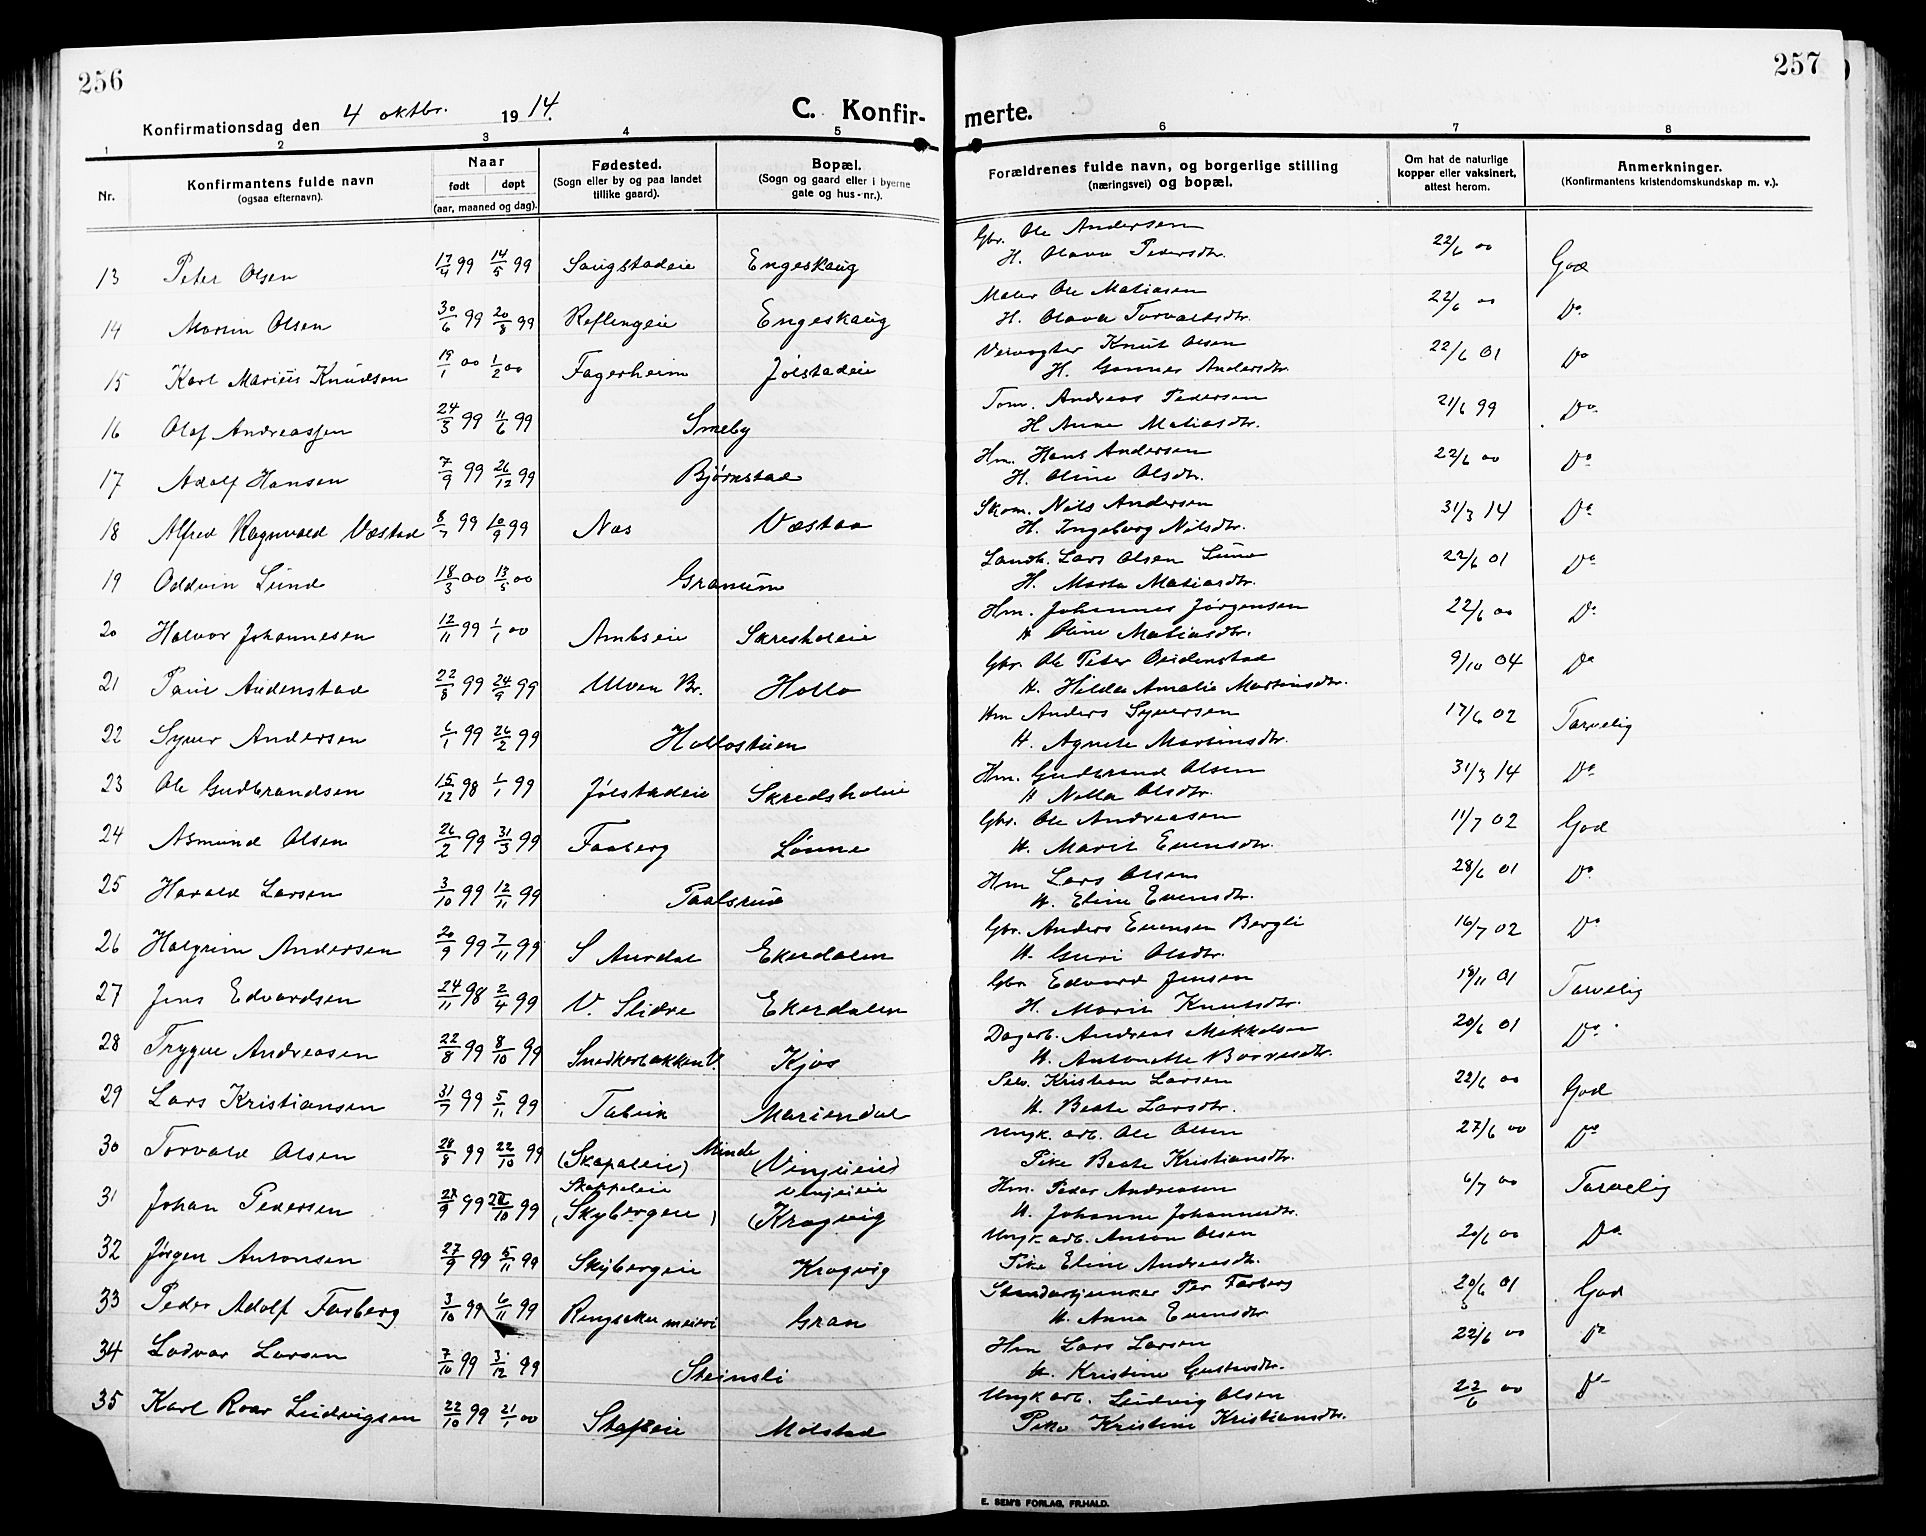 256
257
Konfirmationsdag den 4 oktbr. 1914.
C. Konfirmerte.
1 2 3 4 5 6 7 8
Nr.
Konfirmantens fulde navn
(ogsaa efternavn).
Naar
født døpt
(aar, maaned og dag).
Fødested.
(Sogn eller by og paa landet
tillike gaard).
Bopæl.
(Sogn og gaard eller i byerne
gate og hus-nr.).
Forældrenes fulde navn, og borgerlige stilling
(næringsvei) og bopæl.
Om hat de naturlige
kopper eller vaksinert,
attest herom.
Anmerkninger.
(Konfirmantens kristendomskundskap m. v.).
13 Peter Olsen 17/4 99 14/5 99 Saugstadeie Engeskaug Gbr. Ole Andersen 22/6 00 God
H. Olava Pedersdtr.
14 Martin Olsen 30/6 99 20/8 99 Reflingeie Engeskaug Maler Ole Matiasen 22/6 00 Do
H. Olava Torvaldsdtr.
15 Karl Marius Knudsen 19/1 00 1/2 00 Fagerheim Jølstadeie Veivogter Knut Olsen 22/6 01 Do
H. Gunnes Andersdtr.
16 Olaf Andreassen 24/3 99 11/6 99 Smeby Tom. Andreas Pedersen 21/6 99 Do
H Anna Matiasdtr.
17 Adolf Hansen 7/9 99 26/12 99 Bjørnstad Hm. Hans Andersen 22/6 00 Do
H. Oline Olsdtr.
18 Alfred Ragnvald Væstad 8/7 99 10/9 99 Nes Væstad Skom. Nils Andersen 31/3 14 Do
H. Ingeborg Nilsdtr.
19 Oddvin Lund 18/3 00 13/5 00 Granum Landh. Lars Olsen Lund 22/6 01 Do
H. Marta Matiasdtr.
20 Halvor Johannesen 12/11 99 1/1 00 Ambseie Skredsholeie Hm. Johannes Jørgensen 22/6 00 Do
H Oline Matiasdtr.
21 Paul Audenstad 22/8 99 24/9 99 Ulven Br. Hollo Gbr. Ole Peter Audenstad 9/10 04 Do
H. Hilda Amalie Martinsdtr.
22 Syver Andersen 6/1 99 26/2 99 Hollostuen Hm Anders Syversen 17/6 02 Tarvelig
H. Agnete Martinsdtr.
23 Ole Gudbrandsen 15/12 98 1/1 99 Jølstadeie Skredsholeie Hm. Gudbrand Olsen 31/3 14 Do
H Nella Olsdtr.
24 Asmund Olsen 26/2 99 31/3 99 Faaberg Lunne Gbr. Ole Andreasen 11/7 02 God
H. Marit Evensdtr.
25 Harald Larsen 3/10 99 12/11 99 Paalsrud Hm Lars Olsen 28/6 01 Do
H. Eline Evensdtr.
26 Halgrim Andersen 20/9 99 7/11 99 S Aurdal Ekerdalen Gbr. Anders Evensen Bergli 16/7 02 Do
H. Guri Olsdtr.
27 Jens Edvardsen 24/11 98 2/4 99 V. Slidre Ekerdalen Gbr Edvard Jensen 18/11 01 Tarvelig
H. Marit Knutsdtr.
28 Trygve Andreasen 22/8 99 8/10 99 Snedkerbakken V. Kjos Dagarb. Andreas Mikkelsen 20/6 01 Do
H. Antonette Borresdtr.
29 Lars Kristiansen 31/7 99 5/11 99 Fabrik Mariendal Selv. Kristian Larsen 22/6 00 God
H. Beate Larsdtr.
30 Torvald Olsen 28/8 99 22/10 99 (Skapaleie) Minde (Vinjueie) Ungk. arb. Ole Olsen 27/6 00 Do
Skappaleie Vinjeieie Pike Beate Kristiansdtr.
31 Johan Pedersen 27/9 99 22/10 99 (Skybergeie) (Kragvig Hm. Peder Andreasen 6/7 00 Tarvelig
H. Johanne Johannesdtr.
32 Jørgen Antonsen 27/9 99 5/11 99 Skybergeie Kragvig Ungk. arb. Anton Olsen 20/6 00 Do
Pike Eline Andreasdtr.
33 Peder Adolf Faaberg 3/10 99 6/11 99 Ringsaker meieri Gran Standartjunker Per Faaberg 20/6 01 God
H. Anna Evensdtr.
34 Lodvar Larsen 7/10 99 3/12 99 Steinsli Hm Lars Larsen 22/6 00 Do
H. Kristine Gustavsdtr.
35 Karl Roar Ludvigsen 22/10 99 21/1 00 Stafseie Molstad Ungk. arb. Ludvig Olsen 22/6 00 Do
Pike Kristine Kristiansdtr.
E. SEM'S FORLAG, FR.HALD.